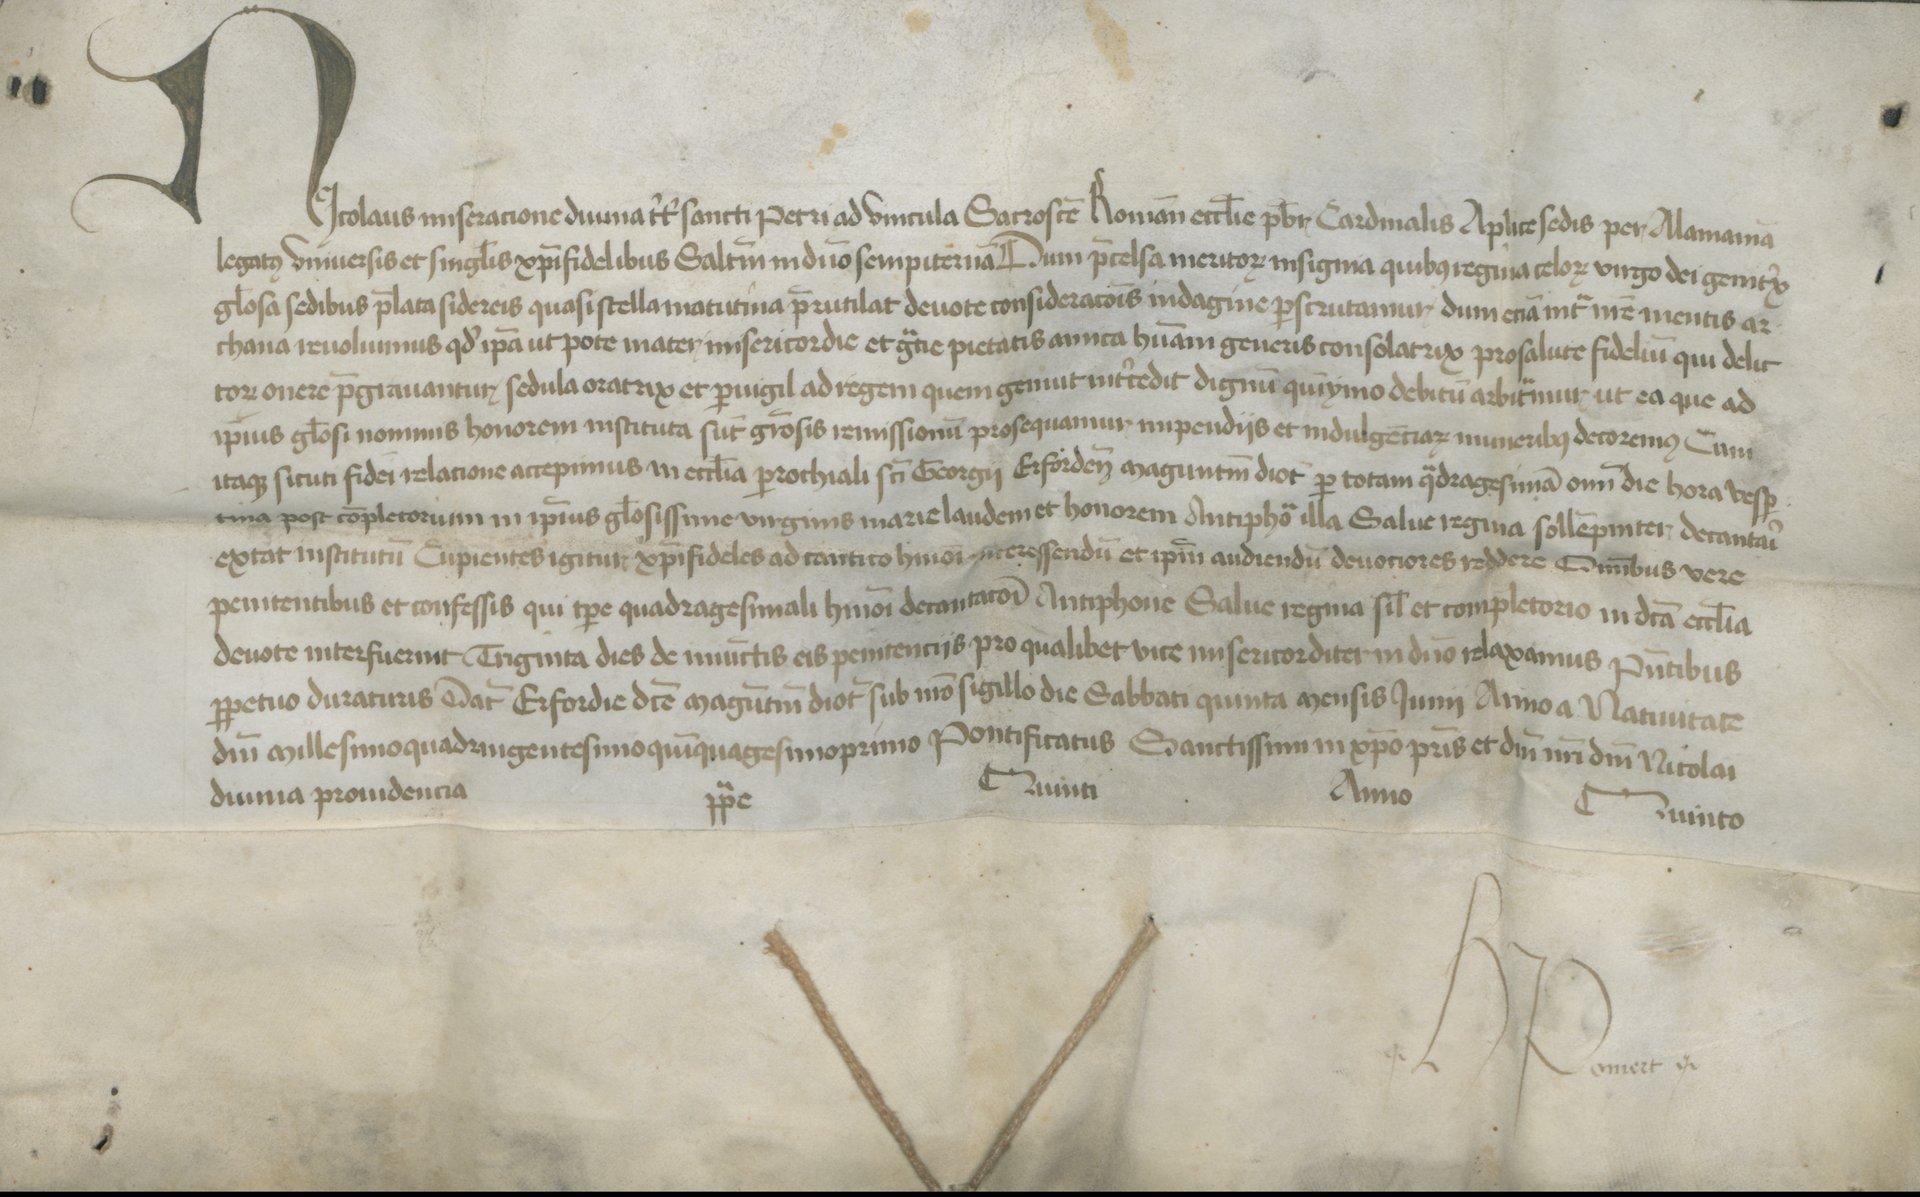 Nicolaus miseracione diuina tt̃ sancti Petri ad vincula Sacroscē Romañ eccl̃ie pb̃r Cardinalis Aplice sedis per Alamaniā
legatꝯ Vniuersis et singl̃is xp̃ifidelibus Salt̃m in dño sempiternā Dum p̃celsa meritoꝝ insignia quibꝯ regina celoꝝ virgo dei genitˀx
gl̃osa sedibus p̃lata sidereis quasi stella matutina p̃rutilat deuote consideracoĩs indagine ꝑscrutamur dum eciā int̃ nr̃e mentis ar
chana reuoluimus qd̕ ip̃a ut pote mater misericordie et gr̃cie pietatis amica hũam generis consolatrix pro salute fideliū qui delic
toꝝ onere p̃grauantur sedula oratrix et ꝑuigil ad regem quem genuit intˀcedit dignū quinymo debitū arbitˀmur ut ea que ad
ip̃ius gl̃osi nominis honorem instituta sūt gr̃osis remissionū prosequamur impendijs et indulgēciaꝝ muneribꝯ decoremꝯ Cum
itaqꝫ sicuti fidei relacione accepimus in eccl̃ia ꝑrochiali sc̃i Georgij Erfordeñ Maguntiñ dioc̃ ꝑ totam qᵃdragesimā omi die hora vesꝑ
tina post cōpletorium in ip̃ius gl̃osissime virginis marie laudem et honorem Antiphoᵃ illa Salue regina sollēpniter decantaˀi
extat institutū Cupientes igitur xp̃ifideles ad cantico hmōi interessendū et ip̃m audiendū deuociores reddere Om̃ibus vere
penitentibus et confessis qui tꝑe quadragesimali hmōi decantacoĩ Antiphone Salue regina sil̃ et completorio in dc̃a eccl̃ia
deuote interfuerint Triginta dies de iniūctis eis penitencijs pro qualibet vice misericorditer in dño relaxamus Pn̄tibus
ꝑpetuo duraturis Dat̃ Erfordie dc̃e Magūtiñ dioc̃ sub nr̃o sigillo die Sabbati quinta Mensis Junij Anno a Natiuitate
dñi Millesimoquadringentesimoquīquagesimoprimo Pontificatus Sanctissimi in xp̃o pr̃is et dñi nr̃i dñi Nicolai
diuina prouidencia pp̃e Quinti Anno Quinto
H Pomert